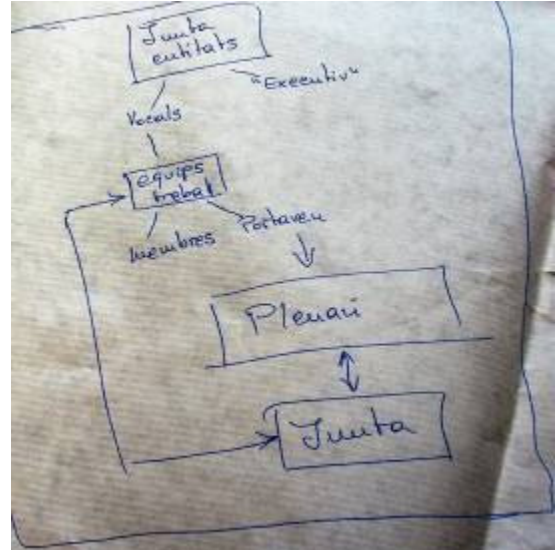 Junta
entitats
"Executiv"
Vocals
equips
trebal
membres
Portaveu
Plenari
Junta